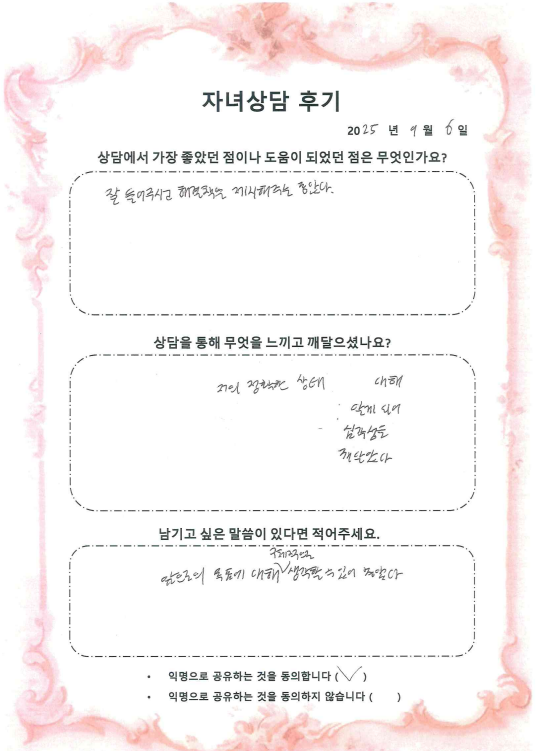 자녀상담 후기
2025 년 9 월 6 일
상담에서 가장 좋았던 점이나 도움이 되었던 점은 무엇인가요?
잘 들어주시고 해결책을 제시해주는 좋았다.
상담을 통해 무엇을 느끼고 깨달으셨나요?
저의 정확한 상태 대해
알게 되어
심각성을
깨달았다
남기고 싶은 말씀이 있다면 적어주세요.
구체적으로
앞으로의 대해 생각할 수 있어 좋았다
• 익명으로 공유하는 것을 동의합니다 (✓)
• 익명으로 공유하는 것을 동의하지 않습니다 ( )